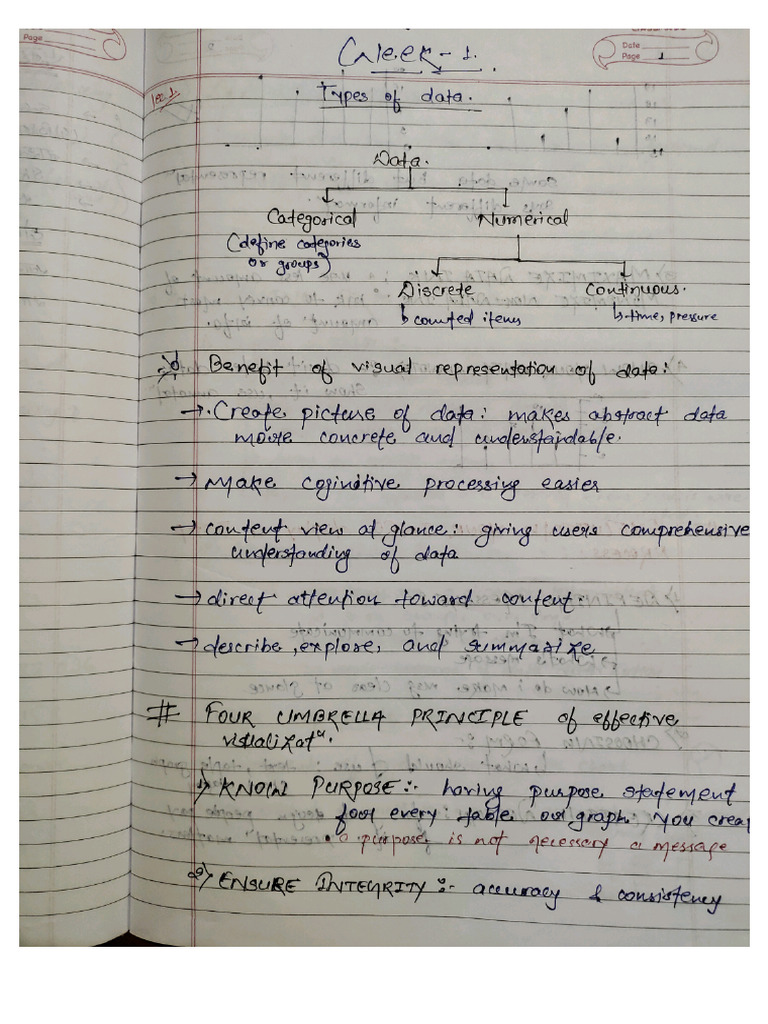 Page
Date
Page 1
Week-1.
Lec 1.
Types of data.
Data.
Categorical Numerical
(define categories
or groups)
Discrete Continuous.
↳ counted items ↳ time, pressure
Benefit of visual representation of data:
→. Create picture of data: makes abstract data
more concrete and understandable.
→ Make coginitive processing easier
→ content view at glance: giving users comprehensive
understanding of data
→ direct attention toward content.
→ describe, explore, and summarize
# FOUR UMBRELLA PRINCIPLE of effective
visualizatⁿ.
1) KNOW PURPOSE:- having purpose statement
for every table or graph you creat
• a purpose, is not necessary a message
2) ENSURE INTEGRITY:- accuracy & consistency